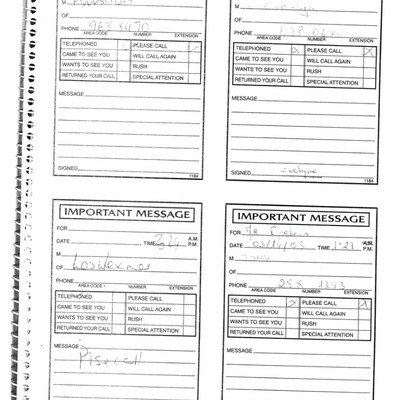 M
OF
PHONE 968 8970
AREA CODE NUMBER EXTENSION
TELEPHONED PLEASE CALL
CAME TO SEE YOU WILL CALL AGAIN
WANTS TO SEE YOU RUSH
RETURNED YOUR CALL SPECIAL ATTENTION
MESSAGE
SIGNED
1184
M
OF
PHONE
AREA CODE NUMBER EXTENSION
TELEPHONED PLEASE CALL
CAME TO SEE YOU WILL CALL AGAIN
WANTS TO SEE YOU RUSH
RETURNED YOUR CALL SPECIAL ATTENTION
MESSAGE
SIGNED Evelyne
1184
IMPORTANT MESSAGE
FOR
DATE TIME 3:24 A.M. P.M.
M
OF
PHONE
AREA CODE NUMBER EXTENSION
TELEPHONED PLEASE CALL
CAME TO SEE YOU WILL CALL AGAIN
WANTS TO SEE YOU RUSH
RETURNED YOUR CALL SPECIAL ATTENTION
MESSAGE
IMPORTANT MESSAGE
FOR
DATE 03/14/03 TIME 1:21 A.M. P.M.
M
OF
PHONE 255 1343
AREA CODE NUMBER EXTENSION
TELEPHONED X PLEASE CALL X
CAME TO SEE YOU WILL CALL AGAIN
WANTS TO SEE YOU RUSH
RETURNED YOUR CALL SPECIAL ATTENTION
MESSAGE